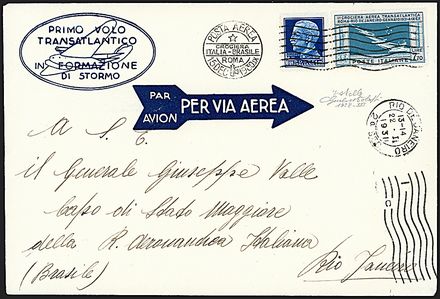 PRIMO VOLO
TRANSATLANTICO
IN FORMAZIONE
DI STORMO
POSTA AEREA
CROCIERA
ITALIA-BRASILE
ROMA
CROCIERA AEREA TRANSATLANTICA
POSTE ITALIANE
7,70
PAR
AVION
PER VIA AEREA
RIO DE JANEIRO
13-14
22 II
1931
A S. E.
il Generale Giuseppe Valle
Capo di Stato Maggiore
della R. Aeronautica Italiana
(Brasile) Rio Janeiro